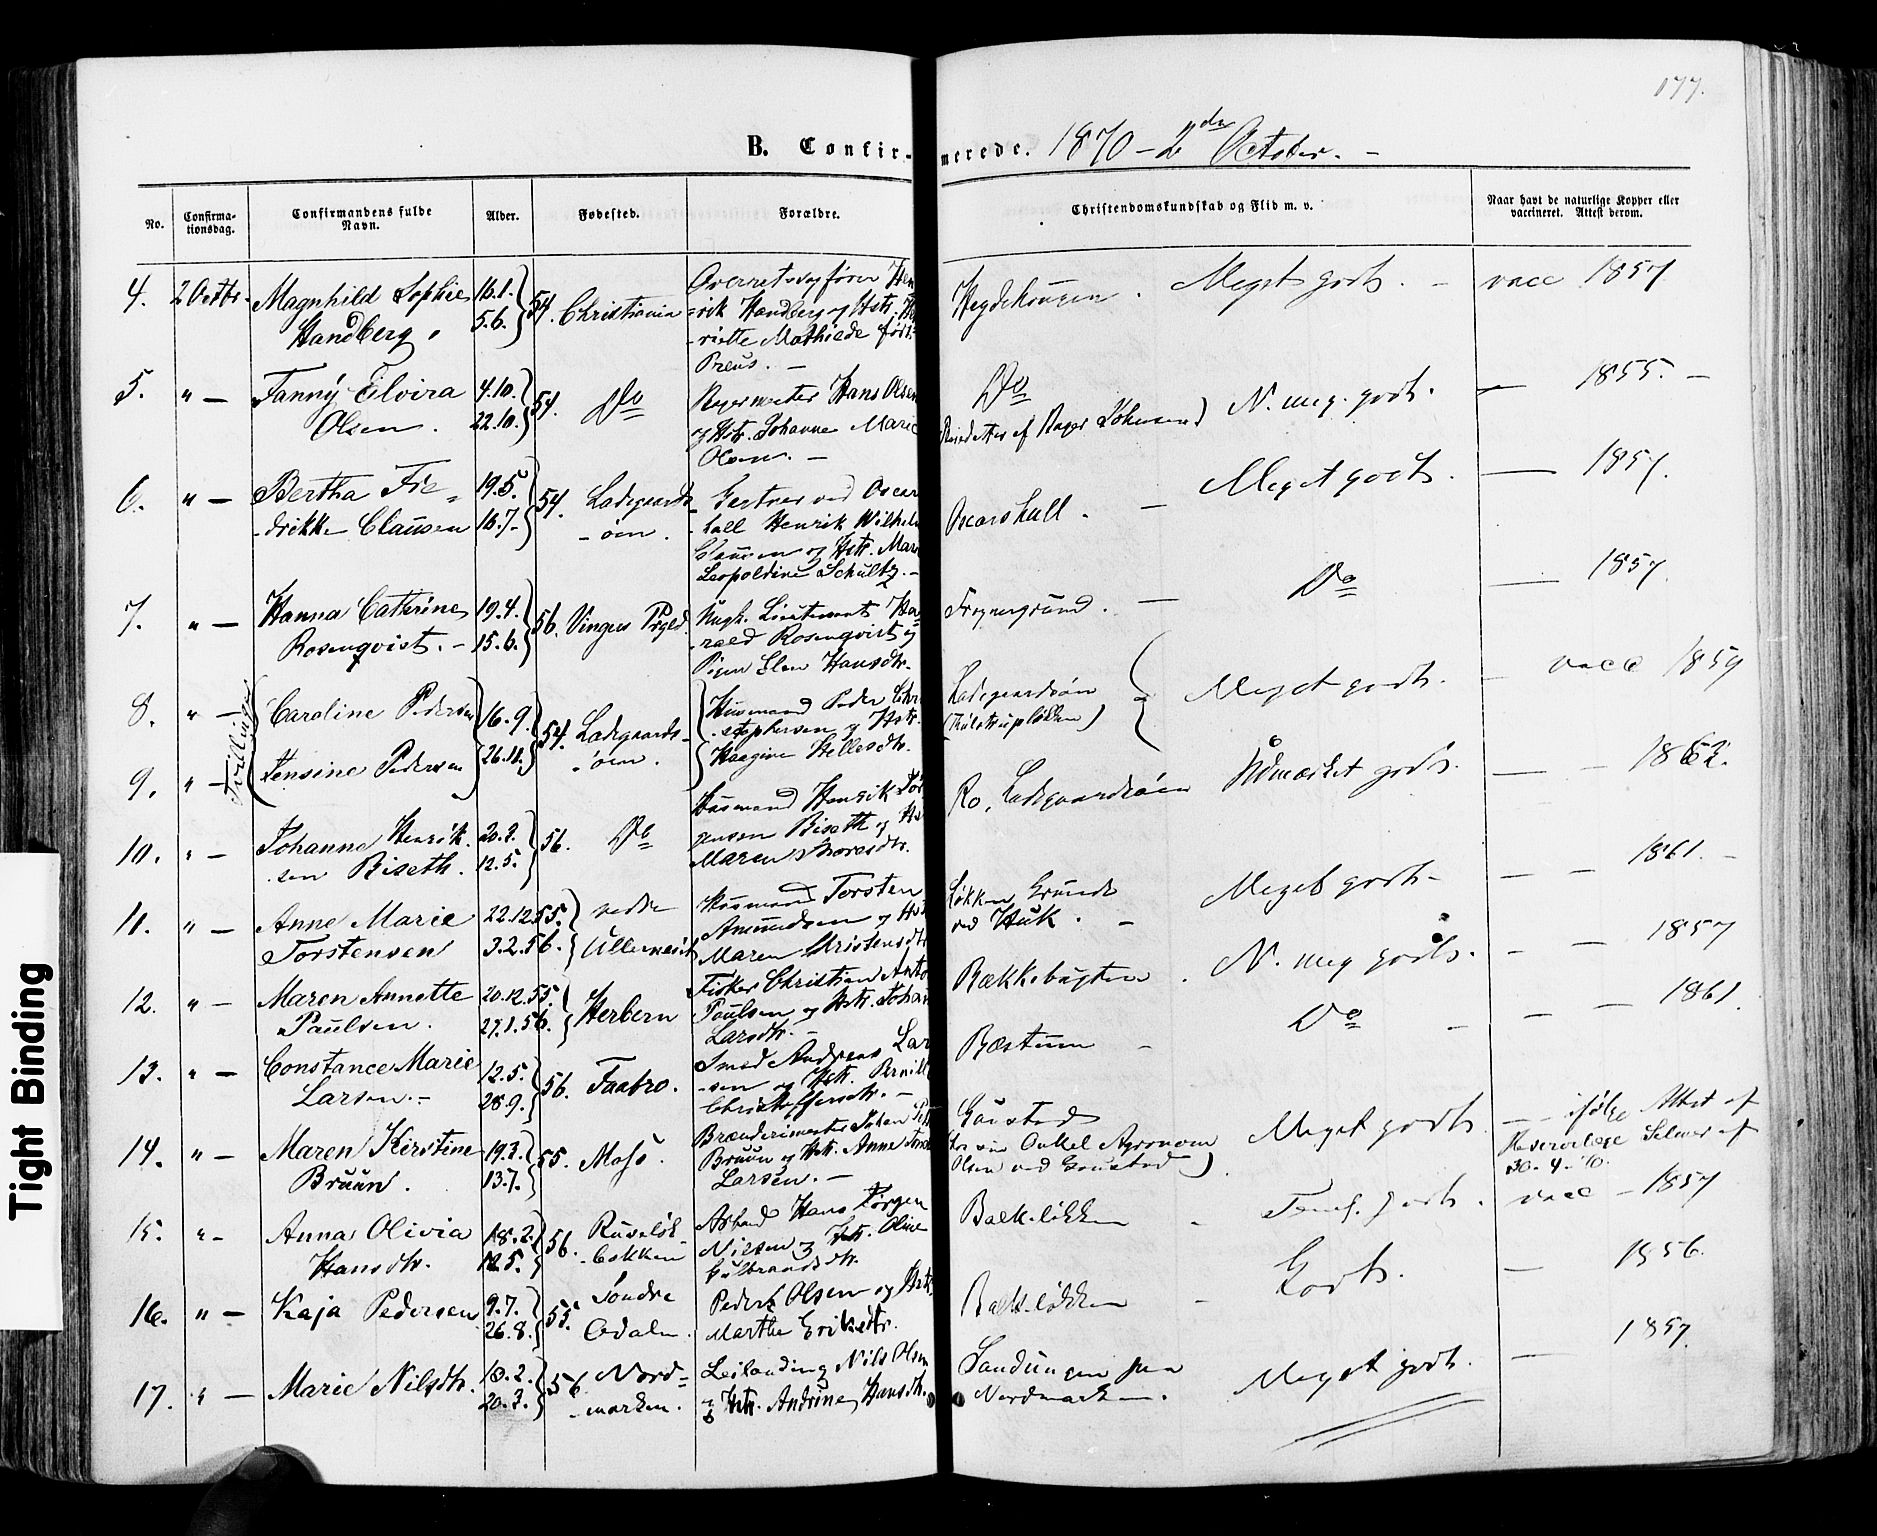 177.
B. Confir-merede. 1870 - 2den October. -
No.
Confirma-
tionsdag.
Confirmandens fulde
Navn.
Alder.
Fødested.
Forældre.
Christendomskundskab og Flid m. v.
Naar havt de naturlige Kopper eller
vaccineret. Attest derom.
4. 2 Octbr. Magnhild Sophie 16.1. 54. Christiania Overretssagfører Hen Meget godt. - vacc 1857
Handberg. 5.6. rik Handberg og Hstr. He
riette Mathilde født
Preus. -
5. " - Fanny Elvira 4.10. 54. Do Hans Olsen Do N. meg. godt. - 1855. -
Olsen. 22.10. og Hstr. Johanne Marie af Bager
Olsen. -
6. " - Bertha Fre= 19.5. 54. Ladegaards Gartner ved Oscar Oscarshall. - Meget godt. - 1857.
drikke Clausen 16.7. - øen. hall Henrik Wilhelm
Clausen og Hstr. Mar
Leopoldine Schultz. -
7. " - Hanna Cathrine 19.4. 56. Vinger Prgld. Ugh. Lieutenant Ha Frognergrund. - Do - 1857.
Rosenqvist. - 15.6. rald Rosenqvist og
Pigen Elen Hansdtr.
Tvillinger
8. " - Caroline Pedersen 16.9. 54. Ladegaards- Husmand Peder Chri Ladegaardsøen Meget godt. - vacc 1859
stophersen og Hstr.
9. " - Jensine Pedersen 26.11. øen. Hellesdtr. Ro, Ladegaardsøen Udmærket godt. - - 1862.
10. " - Johanne Henrik 20.3. 56. Do Husmand Henrik Jør
sen Biseth. 12.5. gensen Biseth og H
Maren Thoresdtr.
11. " - Anne Marie 22.12.55. nedre Husmand Torsten Løkken Grunde Meget godt - - - 1861. -
Torstensen 3.2.56. Ullernesie Amundsen og Hst ved Huk. -
Maren Christensdtr
12. " - Maren Annette 20.12.55. Herbern Fisker Christian Anto Bækkebugten. N. meg godt. - - 1857
Paulsen. 27.1.56. Paulsen og Hstr. Johan
Larsdtr. -
13. " - Constance Marie 12.5. 56. Faabro. Smed Andreas Lar Bæstum - Do - - - 1861.
Larsen. - 28.9. sen og Hstr. Pernille
Christoffersdtr. -
14. " - Maren Kirstine 19.3. 55. Moss. Brænderimester Gaustad Meget godt. - - ifølge Attest af
Bruun. 13.7. Bruun og Hstr. Anne (hos sin Onkel Agronom Selmer af
Larsen. - Olsen ved Gaustad) 30-4-70.
15. " - Anna Olivia 18.2. 56. Ruseløk- Arbmd Hans Jørgen Balkeløkken - Temf. godt. vacc - 1857
Hansdtr. 12.5. bakken Nilsen og Hstr. Oline
Gulbrandsdtr.
16. " - Kaja Pedersen 9.7. 55. Søndre Peder Olsen og Hstr Balkeløkken - Godt. - 1856.
26.8. Odalen. Marthe Eriksdtr.
17. " - Marie Nilsdtr. 13.2. 56. Nord= Leilænding Nils Olsen Sandungen paa Meget godt. - 1857.
20.3. -marken. og Hstr. Andrine Hansdtr. Nordmarken.
Tight Binding